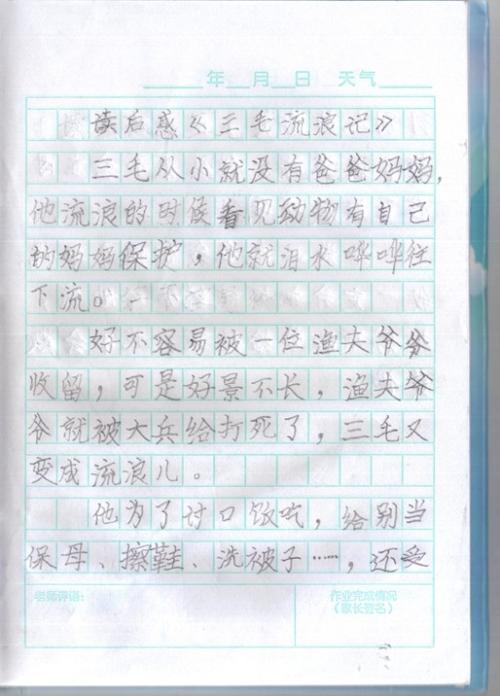 年 月 日 天气
读后感《三毛流浪记》
三毛从小就没有爸爸妈妈,
他流浪的时候看见动物有自己
的妈妈保护，他就泪水哗哗往
下流。
好不容易被一位渔夫爷爷
收留，可是好景不长，渔夫爷
爷就被大兵给打死了，三毛又
变成流浪儿。
他为了讨口饭吃，给别当
保母、擦鞋、洗被子……，还受
老师评语： 作业完成情况
（家长签名）